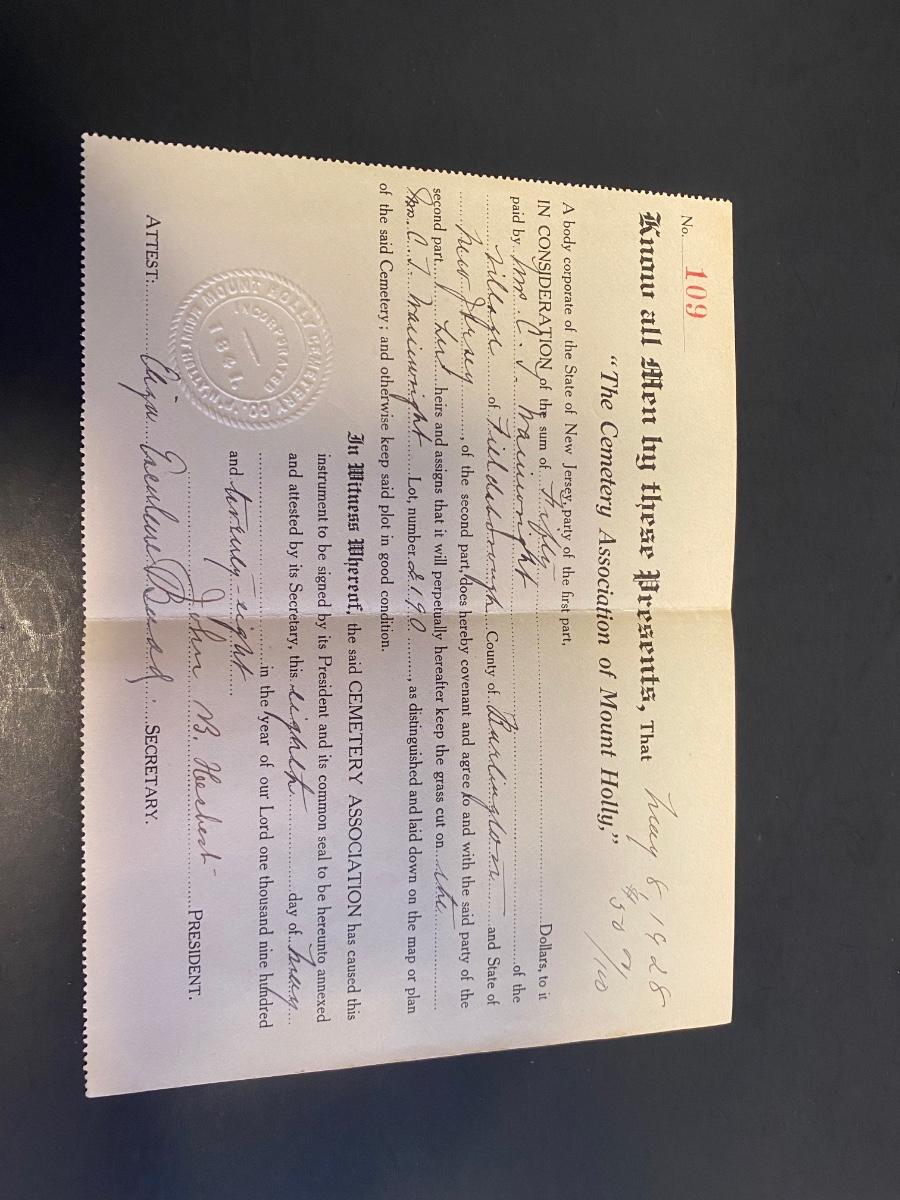 No. 109
May 8, 1928
Know all Men by these Presents, That $50 00/100
"The Cemetery Association of Mount Holly,"
A body corporate of the State of New Jersey, party of the first part,
IN CONSIDERATION of the sum of Fifty Dollars, to it
paid by Mr. C. J. Wainwright of the
Village of Fieldsborough County of Burlington and State of
New Jersey, of the second part, does hereby covenant and agree to and with the said party of the
second part, heirs and assigns that it will perpetually hereafter keep the grass cut on the
C. J. Wainwright Lot, number 2190, as distinguished and laid down on the map or plan
of the said Cemetery; and otherwise keep said plot in good condition.
In Witness Whereof, the said CEMETERY ASSOCIATION has caused this
instrument to be signed by its President and its common seal to be hereunto annexed
and attested by its Secretary, this eighth day of May
in the year of our Lord one thousand nine hundred
and twenty-eight
John B. Herbert PRESIDENT.
ATTEST: Budd SECRETARY.
MOUNT HOLLY CEMETERY CO.
INCORPORATED
1841